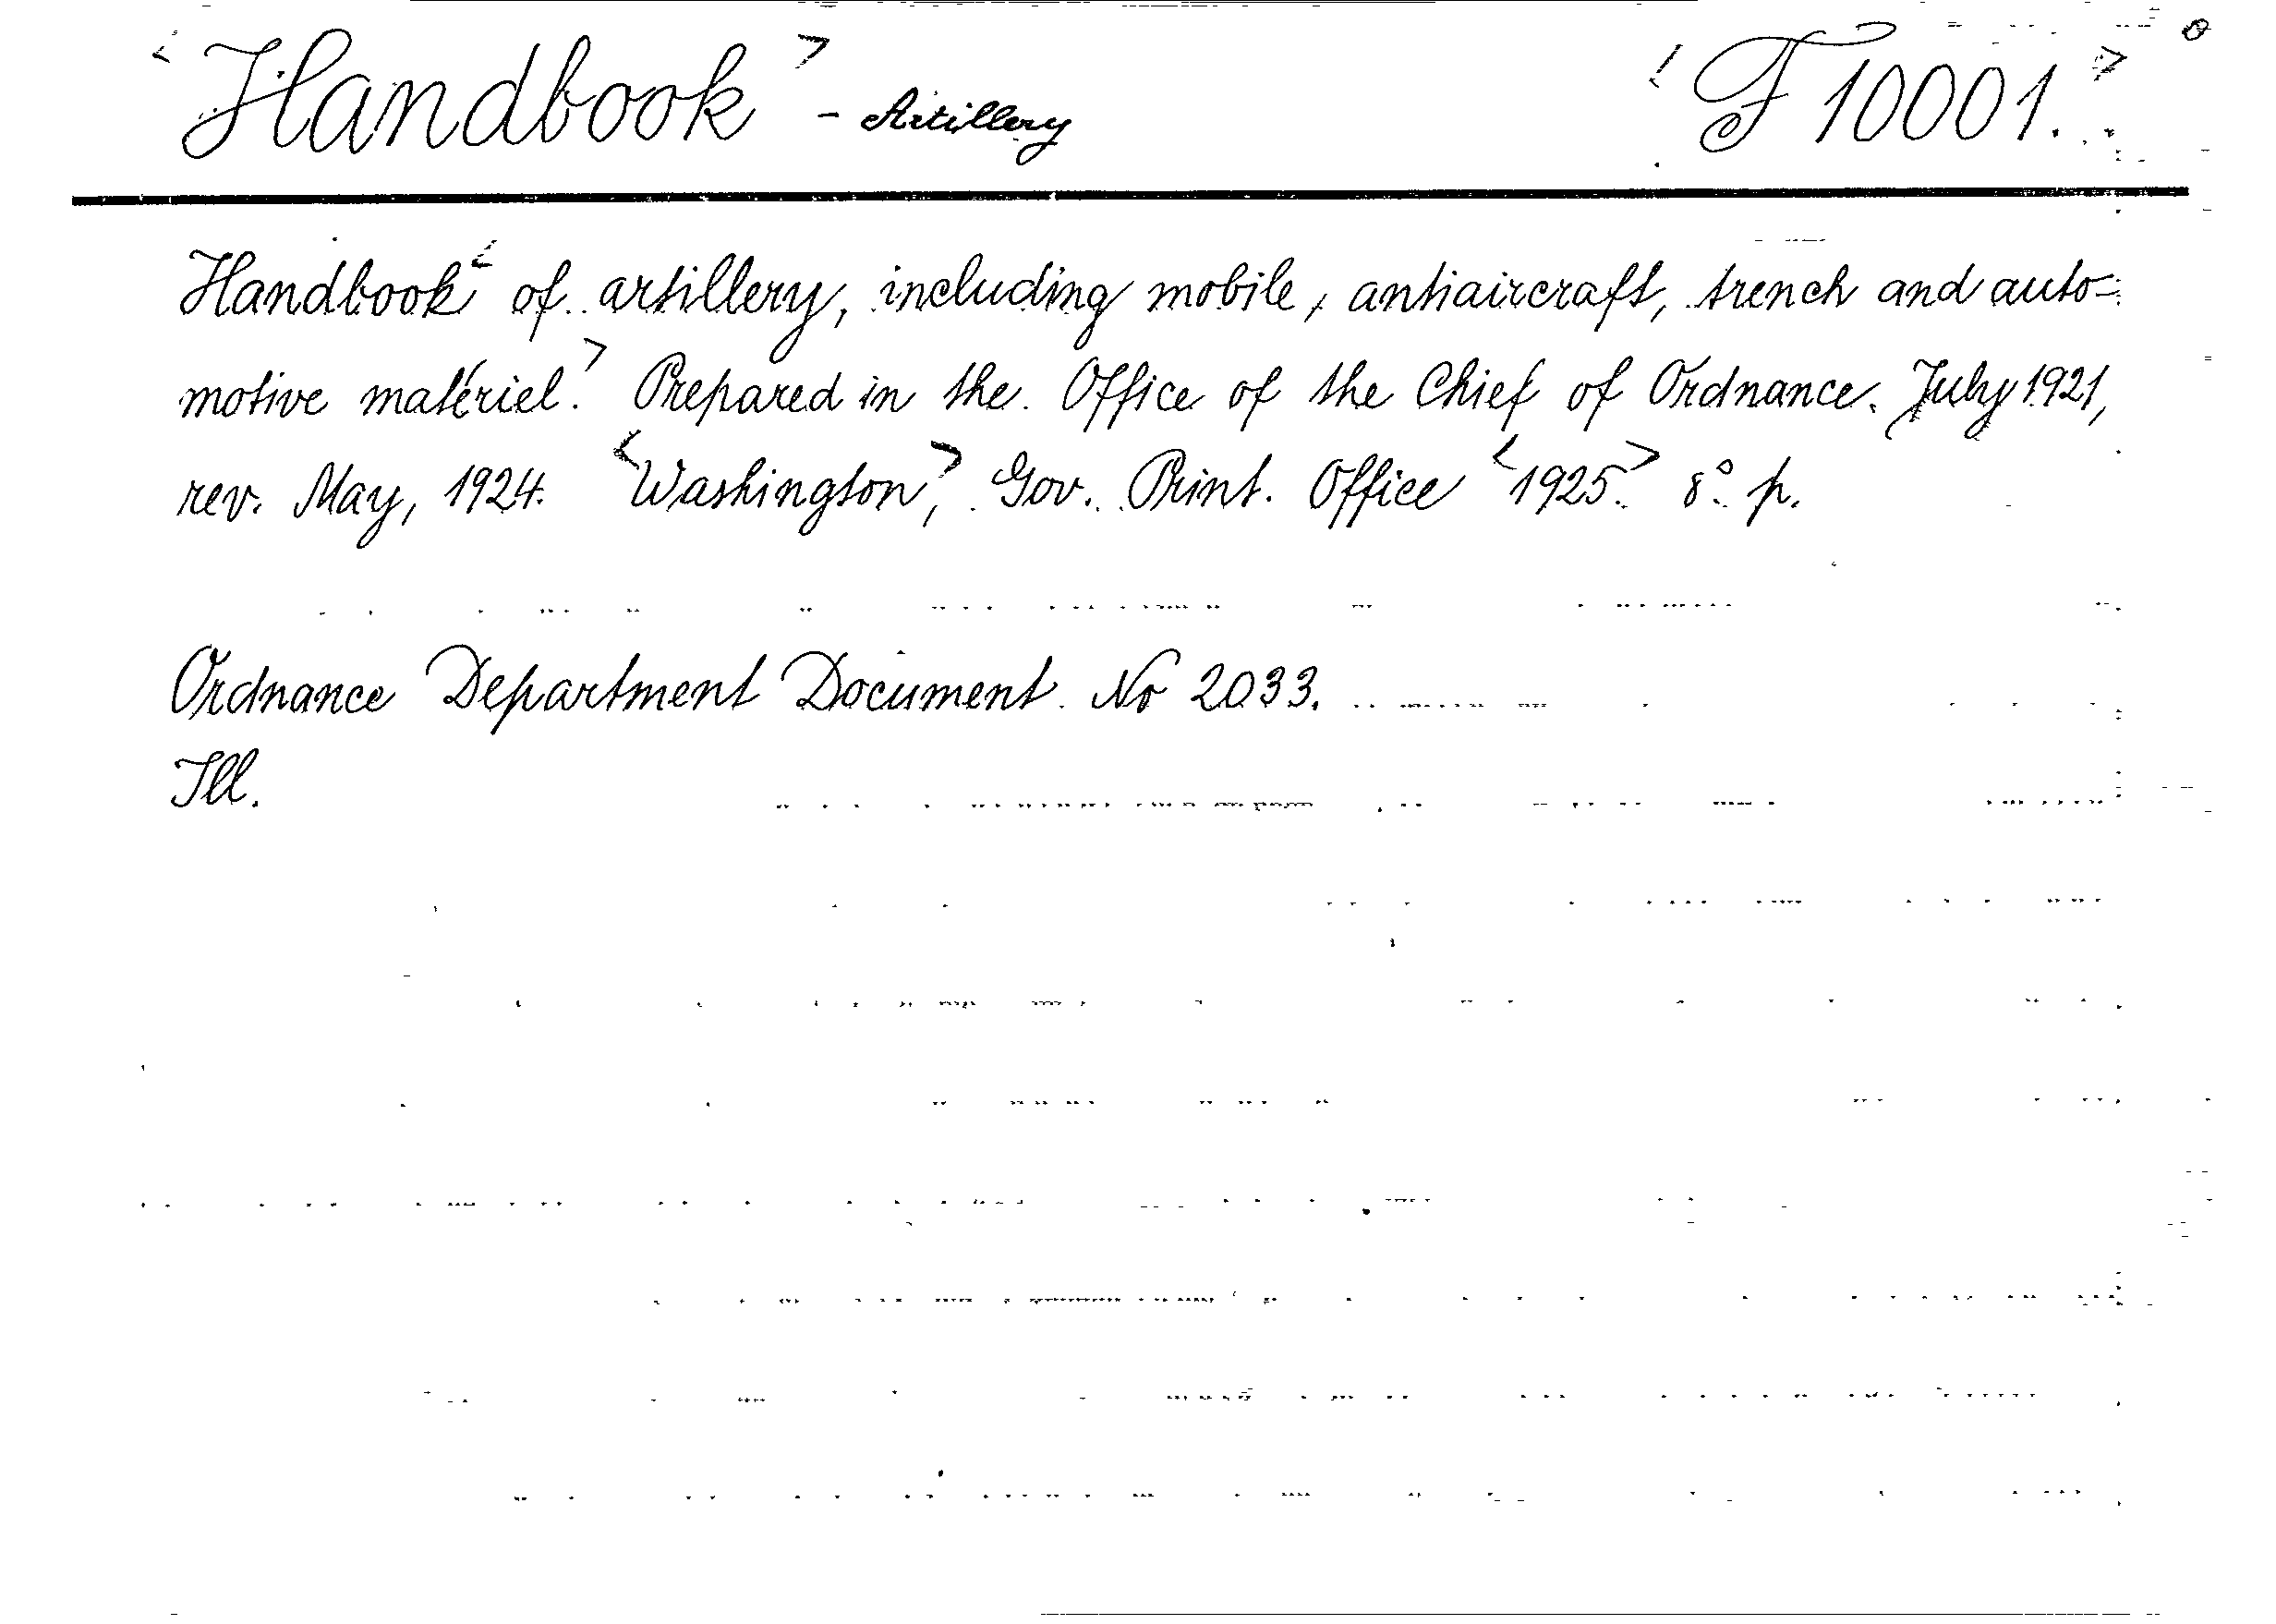 <Handbook> - Artillery <F 10001.>
Handbook< of artillery, including mobile, antiaircraft, trench and auto-
motive matériel.> Prepared in the Office of the Chief of Ordnance. July 1921,
rev. May, 1924. <Washington,> Gov. Print. Office <1925.> 8° p.
Ordnance Department Document No 2033.
Ill.